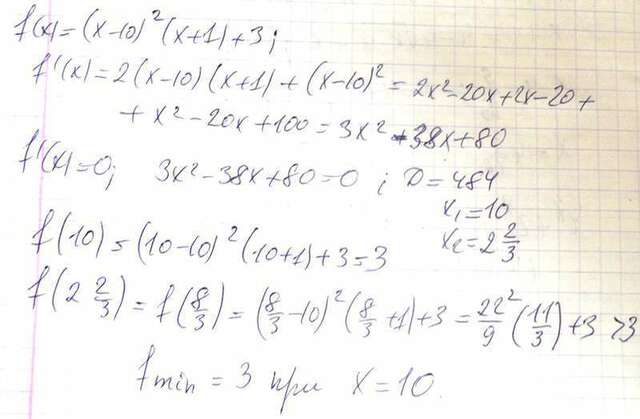 f(x) = (x-10)²(x+1)+3;
f'(x) = 2(x-10)(x+1) + (x-10)² = 2x²-20x+2x-20+
+ x²-20x+100 = 3x²-38x+80
f'(x)=0; 3x²-38x+80=0; D=484
x₁=10
x₂=2 2/3
f(10) = (10-10)²(10+1)+3=3
f(2 2/3) = f(8/3) = (8/3-10)²(8/3+1)+3 = 22²/9 (11/3)+3 >3
fmin = 3 при x=10